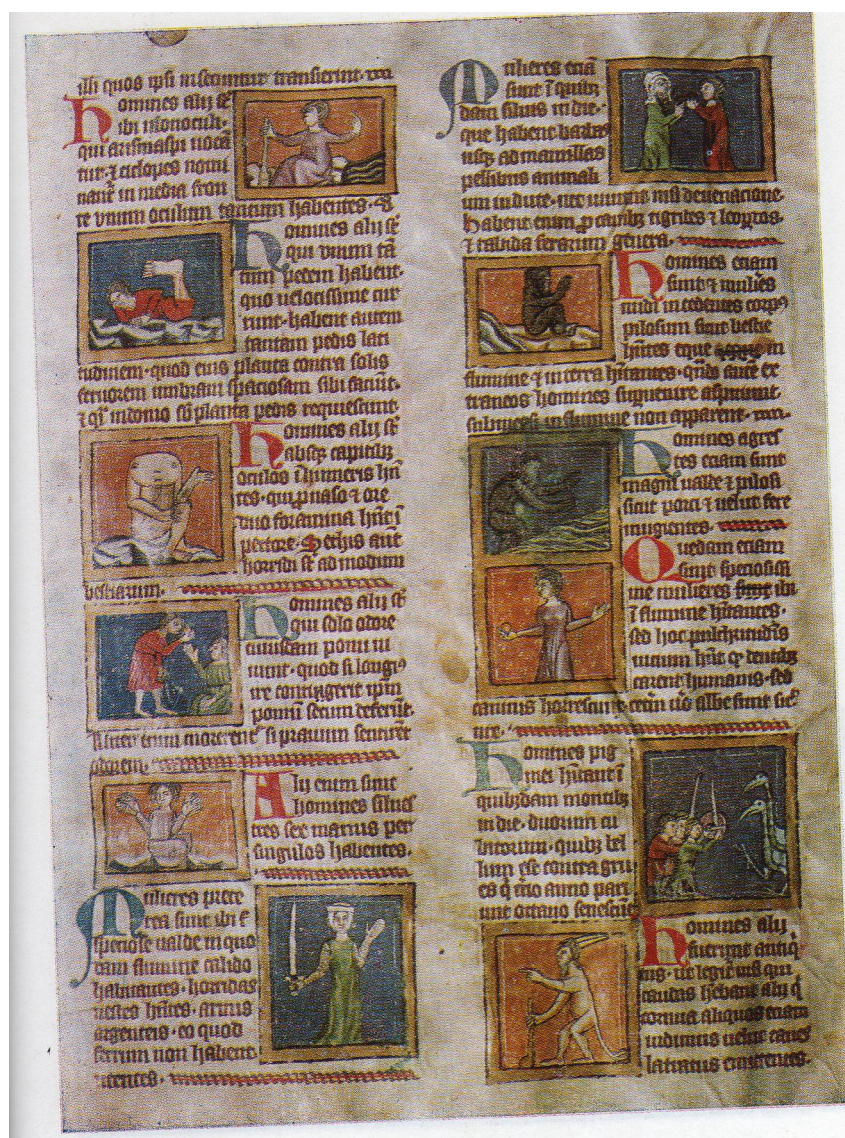 illi quos ipsi insecuntur transierint.
Homines alij sūt
ibi monoculi
qui arismaspi uocā
tur ⁊ ciclopes nomi
nant̄ in media fron
te vnum oculum tantum habentes.
Homines alij sūt
qui vnum tā
tum pedem habent
quo uelocissime cur
runt. habent autem
tantam pedis lati
tudinem. quod eius planta contra solis
feruorem umbram spaciosam sibi faciunt.
planta pedis requiescunt.
Homines alij sūt
absq̄ capitibꝫ
oculos ī humeris hn̄
tes. qui p̱ naso ⁊ ore
duo foramina hn̄t ī
pectore. Setas aūt
horridi sūt ad modum
bestiarum.
Homines alij sūt
qui solo odore
cuiusdam pomi ui
uunt. quod si longiꝰ
ire contigerit ip̄m
pomū secum deferunt.
aliter enim morerent̄ si prauum sentirent
odorem.
Alij enim sunt
homines silues
tres sex manus per
singulos habentes.
Mulieres prete
rea sunt ibi
speciose ualde in quo
dam flumine calido
habitantes. horridas
uestes hn̄tes. armis
argenteis. eo quod
ferrum non habent
utentes.
Mulieres eciā
sunt ī quibꝰ
dam siluis indie.
que habent barbas
usqꝫ ad mamillas
pellibus animali
um indute. nec uiuunt nisi de uenacione
habent enim p̱ canibꝫ tigrides ⁊ leop̱dos.
⁊ talinda ferarum genera.
Homines eciam
sunt ⁊ mulieres
nudi incedentes corpꝰ
pilosum sicut bestie
hn̄tes eque in
flumine ⁊ in terra hītantes. qn̄do autē ex
traneos homines superuenire aspiciunt
submersi in flumine non apparent.
Homines agres
tes eciam sunt
magni ualde ⁊ pilosi
sicut porci ⁊ uelut fere
mugientes.
Quedam eciam
sunt speciosissi
me mulieres ibi
ī flumine hītantes.
sed hoc pulchritudinis
uicium hn̄t qꝫ dentibꝫ
carent humanis. sed
caninis horrescunt. cetrū ūo albe sunt sic̄
niue.
Homines pig
mei hītant ī
quibusdam montibꝫ
indie. duorum cu
bitorum. quibꝫ bel
lum est contra gru
es q̄ tr̄cio anno pari
unt octauo senescūt.
Homines alij
fuerunt antiqi
tus. ut legimus qui
caudas habebant alij q̄
cornua aliquos eciam
uidimus uelut canes
latratus emitentes.